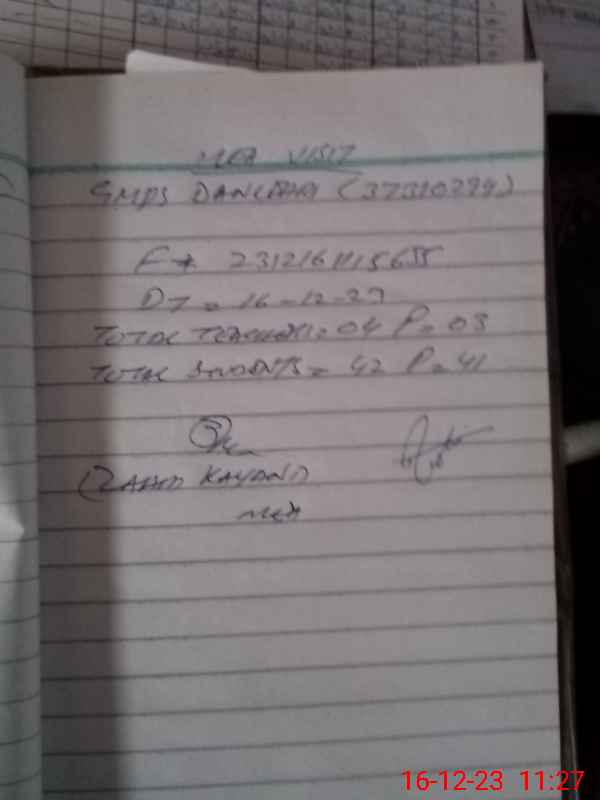 MEA VISIT
GMPS (37310294)
F# 2312161115655
DT = 16-12-23
TOTAL TEACHERS = 04 P = 03
TOTAL STUDENTS = 42 P = 41
(ZAHID KAYANI)
MEA
16-12-23 11:27